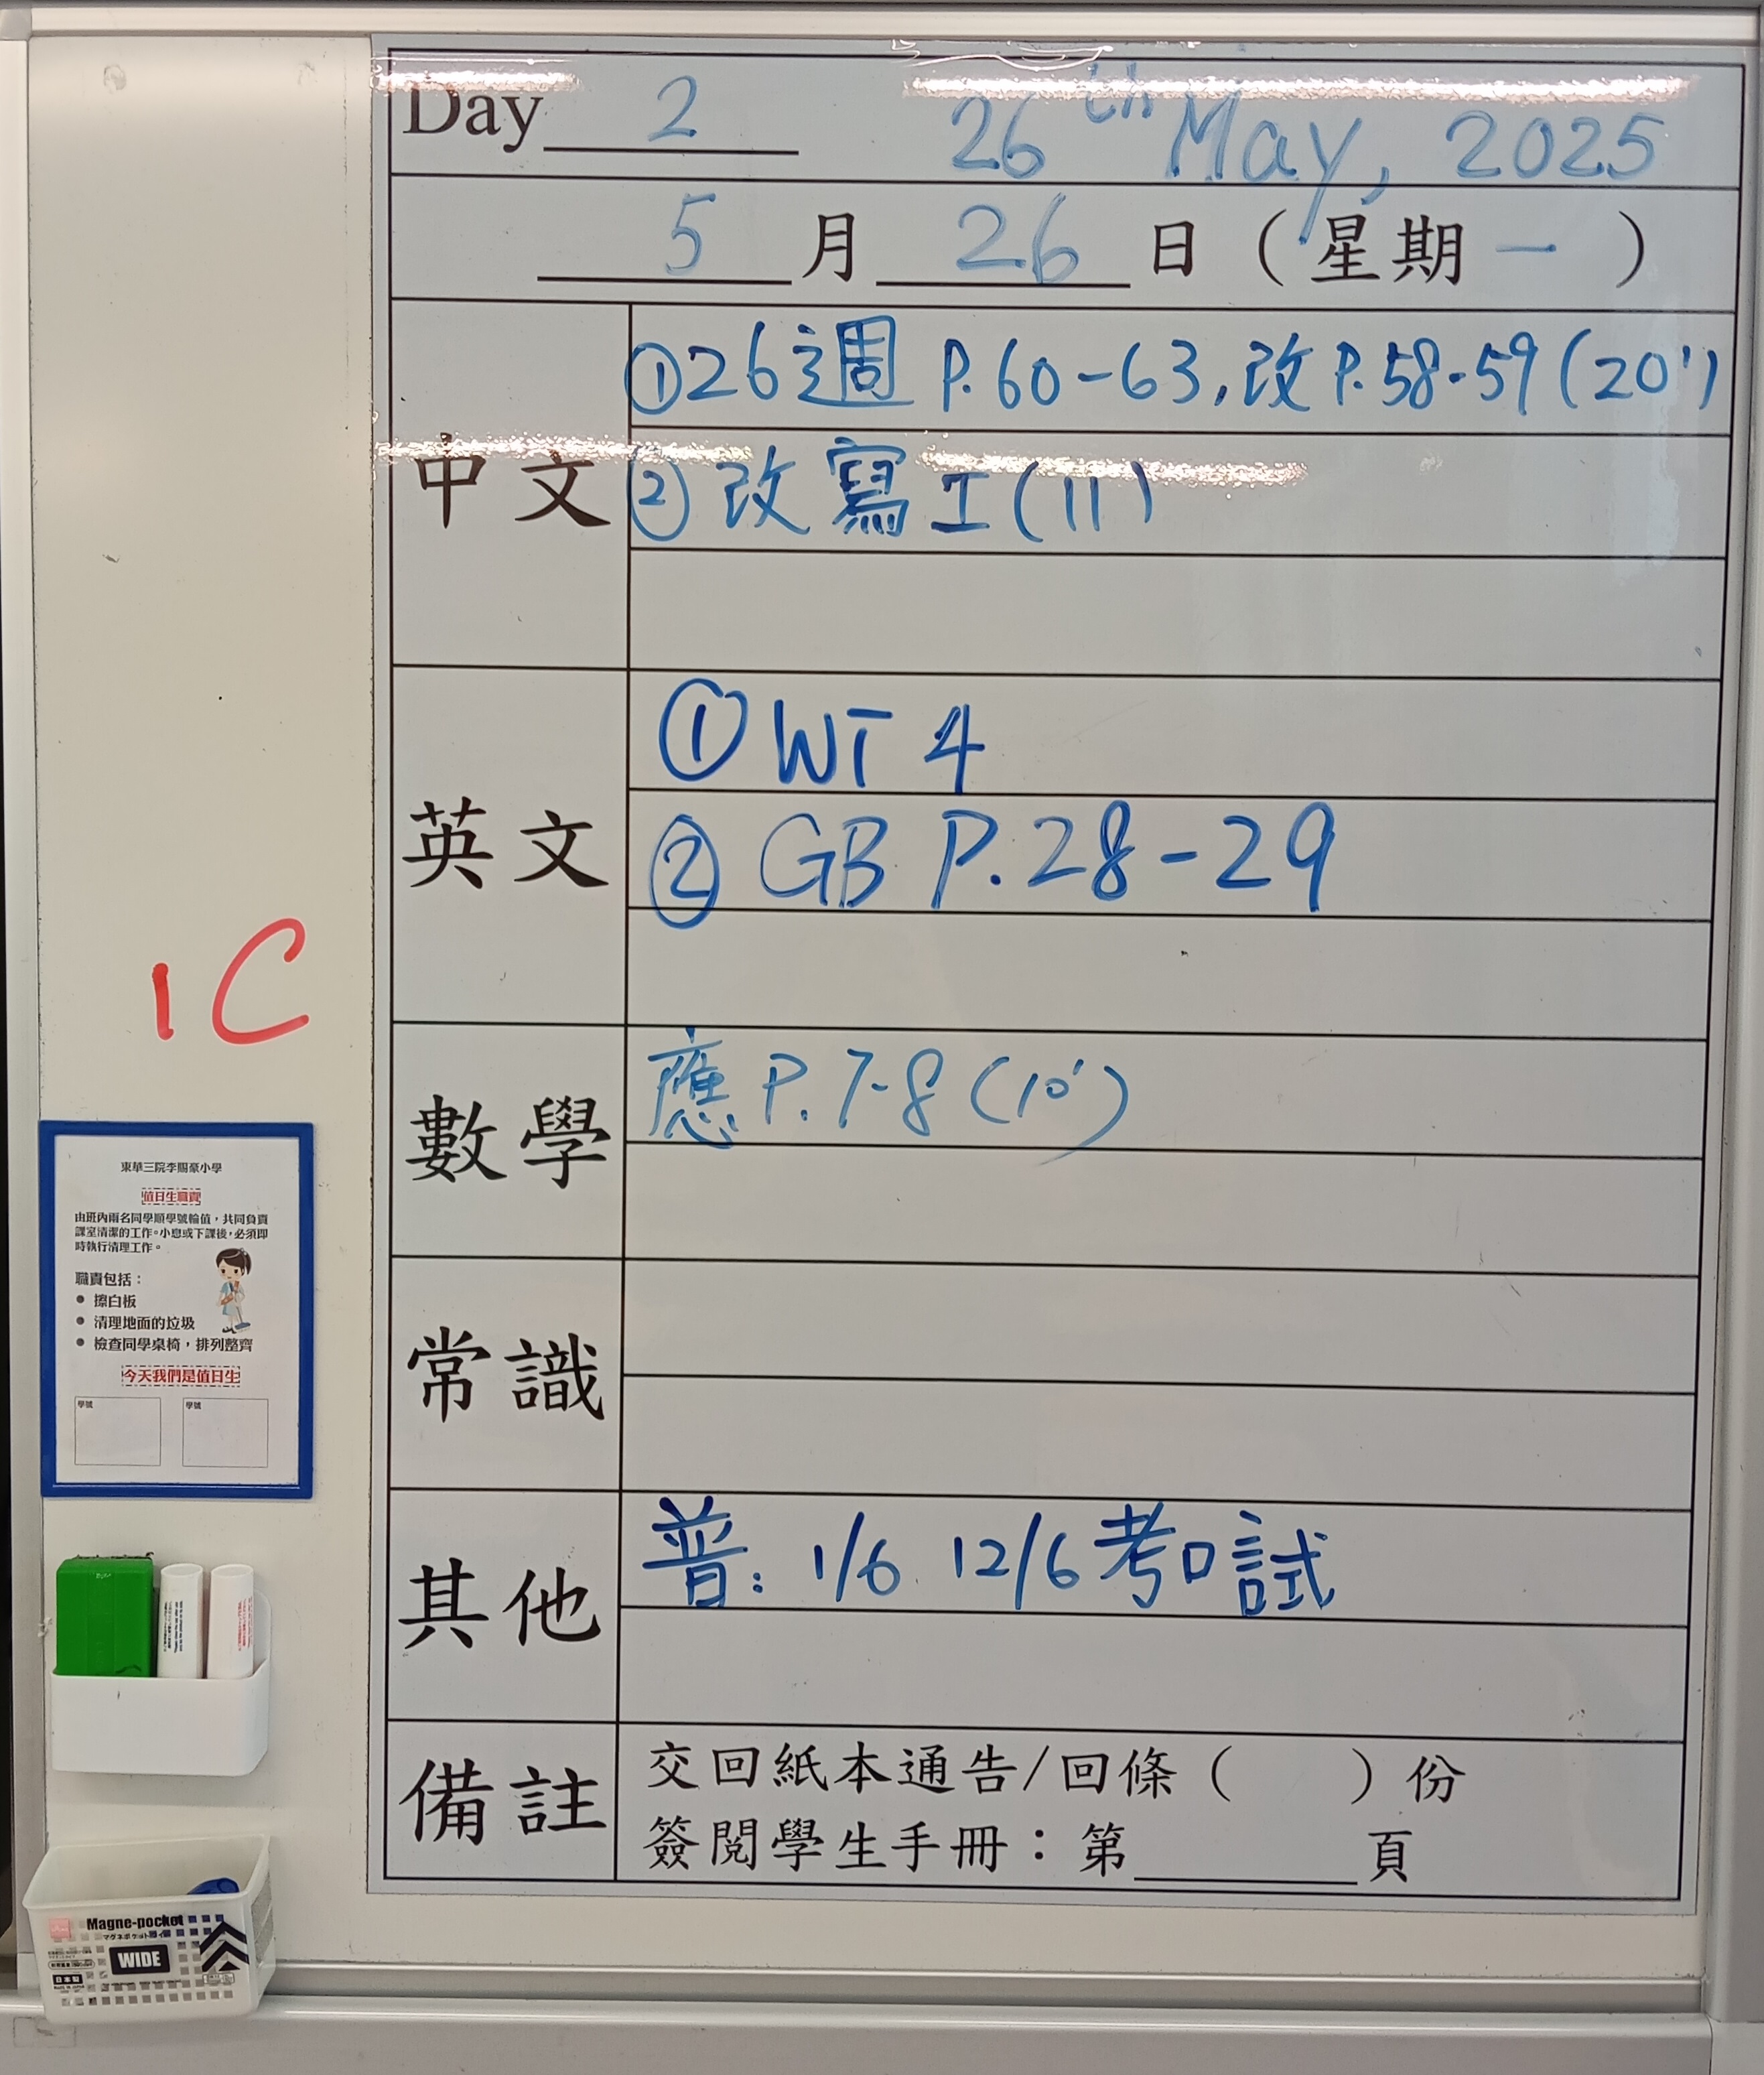 Day 2 26th May, 2025
5 月 26 日 ( 星期 一 )
中文
①26週 P.60-63, 改 P.58-59 (20')
②改寫工(11)
英文
① WT 4
② GB P.28-29
1C
數學
應 P.7-8 (10')
常識
其他
普: 1/6 12/6 考口試
備註
交回紙本通告/回條 ( ) 份
簽閱學生手冊：第 頁
東華三院李賜豪小學
值日生職責
由班內兩名同學順學號輪值，共同負責
課室清潔的工作。小息或下課後，必須即
時執行清理工作。
職責包括：
● 擦白板
● 清理地面的垃圾
● 檢查同學桌椅，排列整齊
今天我們是值日生
學號 學號
Magne-pocket
マグネポケット
WIDE
日本製